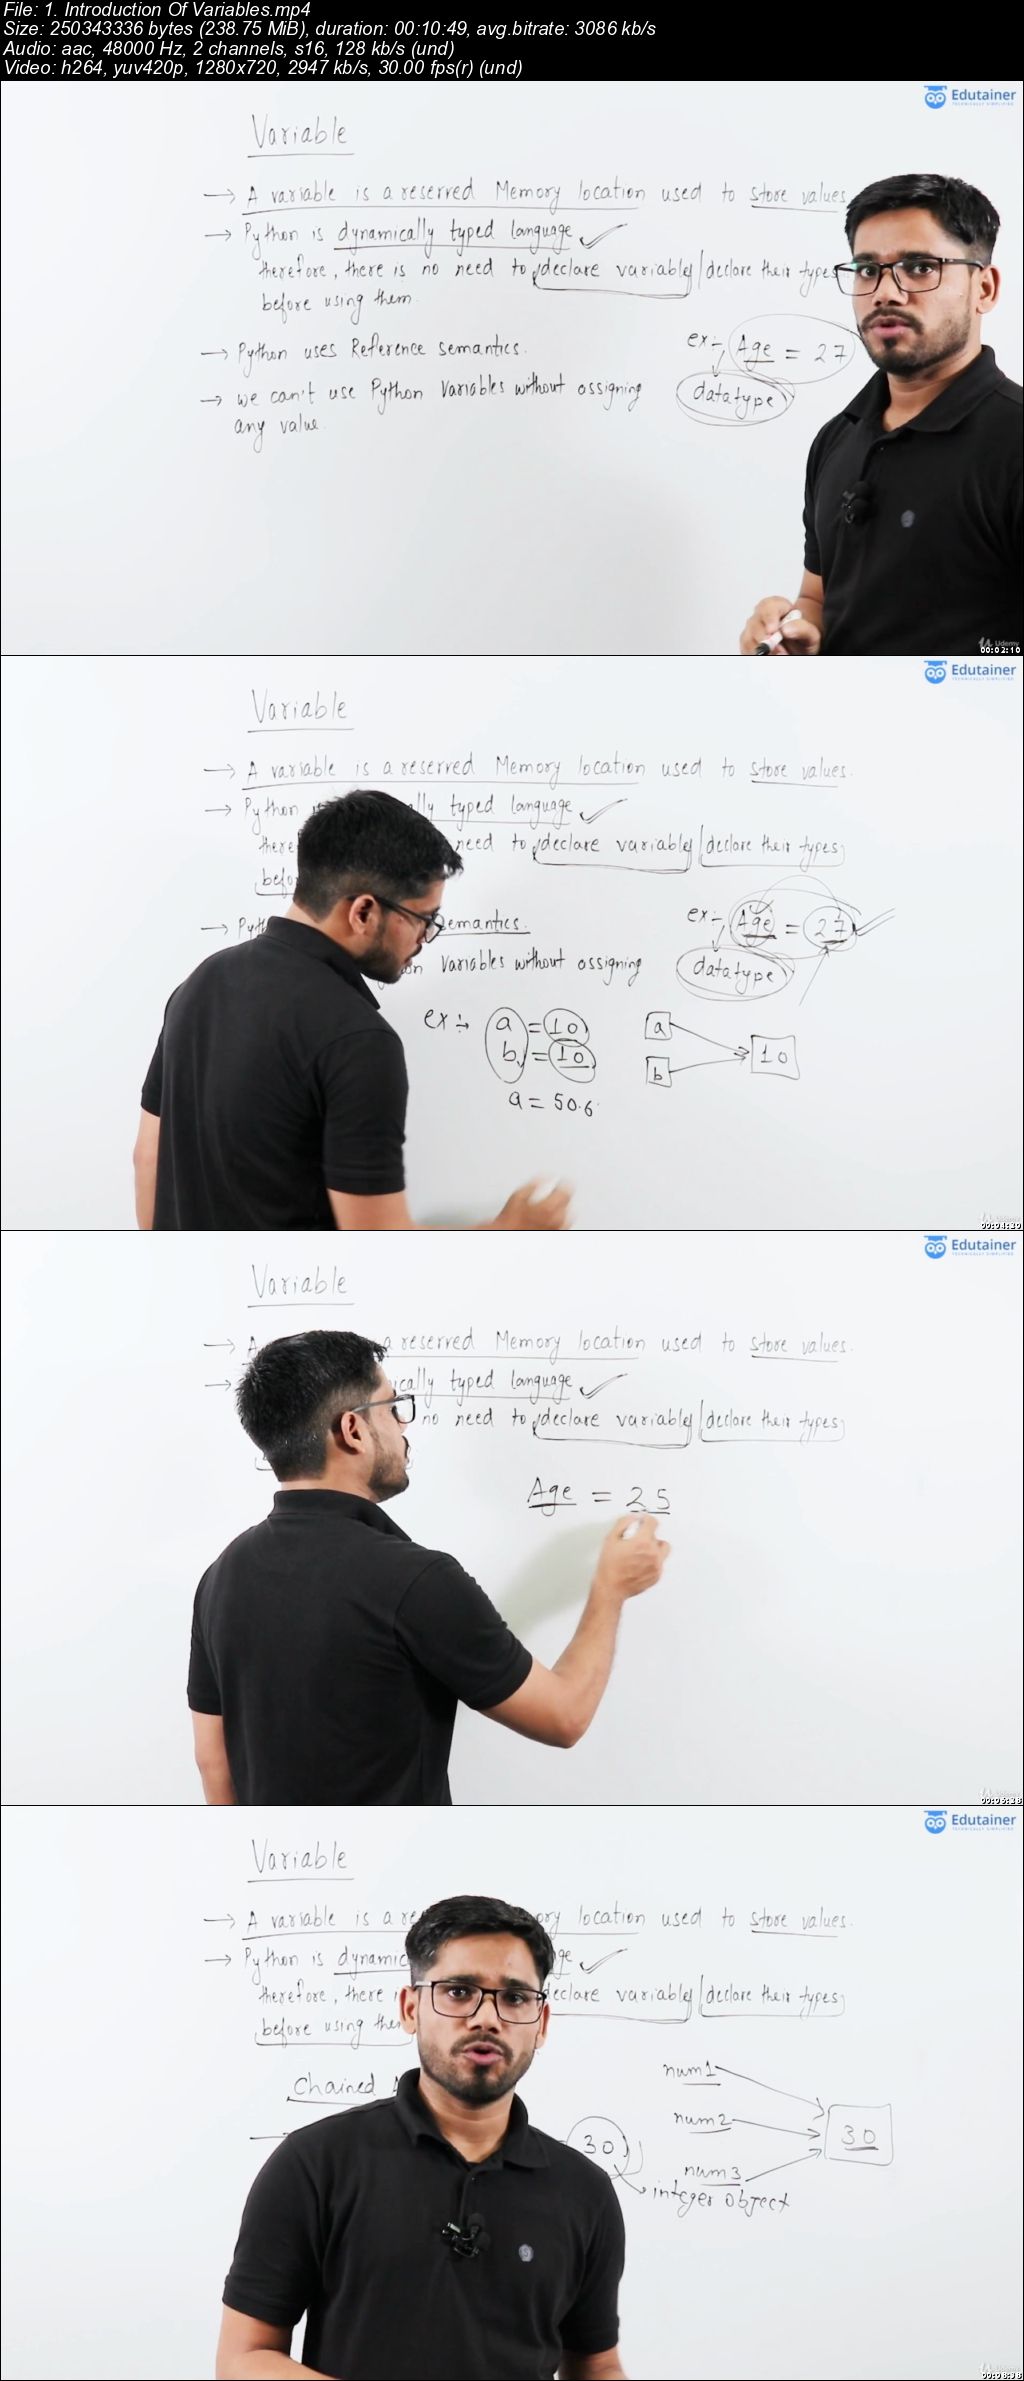 File: 1. Introduction Of Variables.mp4
Size: 250343336 bytes (238.75 MiB), duration: 00:10:49, avg.bitrate: 3086 kb/s
Audio: aac, 48000 Hz, 2 channels, s16, 128 kb/s (und)
Video: h264, yuv420p, 1280x720, 2947 kb/s, 30.00 fps(r) (und)
Edutainer
TECHNICALLY SIMPLIFIED
Variable
→ A variable is a reserved Memory location used to store values
→ Python is dynamically typed language ✓
therefore, there is no need to declare variables/declare their types
before using them.
→ Python uses Reference semantics.
ex:- Age = 27
→ we can't use Python Variables without assigning
datatype
any value.
Udemy
00:02:10
Edutainer
TECHNICALLY SIMPLIFIED
Variable
→ A variable is a reserved Memory location used to store values.
→ Python typed language ✓
need to declare variables/declare their types
→ semantics.
ex:- Age = 27
Variables without assigning
datatype
ex:- a = 10
b = 10
a = 50.6
a
b
10
00:04:20
Edutainer
TECHNICALLY SIMPLIFIED
Variable
→ a reserved Memory location used to store values.
→ typed language ✓
no need to declare variables/declare their types
Age = 25
00:06:28
Edutainer
TECHNICALLY SIMPLIFIED
Variable
→ A variable is a location used to store values.
→ Python is ✓
therefore, there declare variables/declare their types
before using
Chained
30
num1
num2
num3
30
integer object
00:08:38